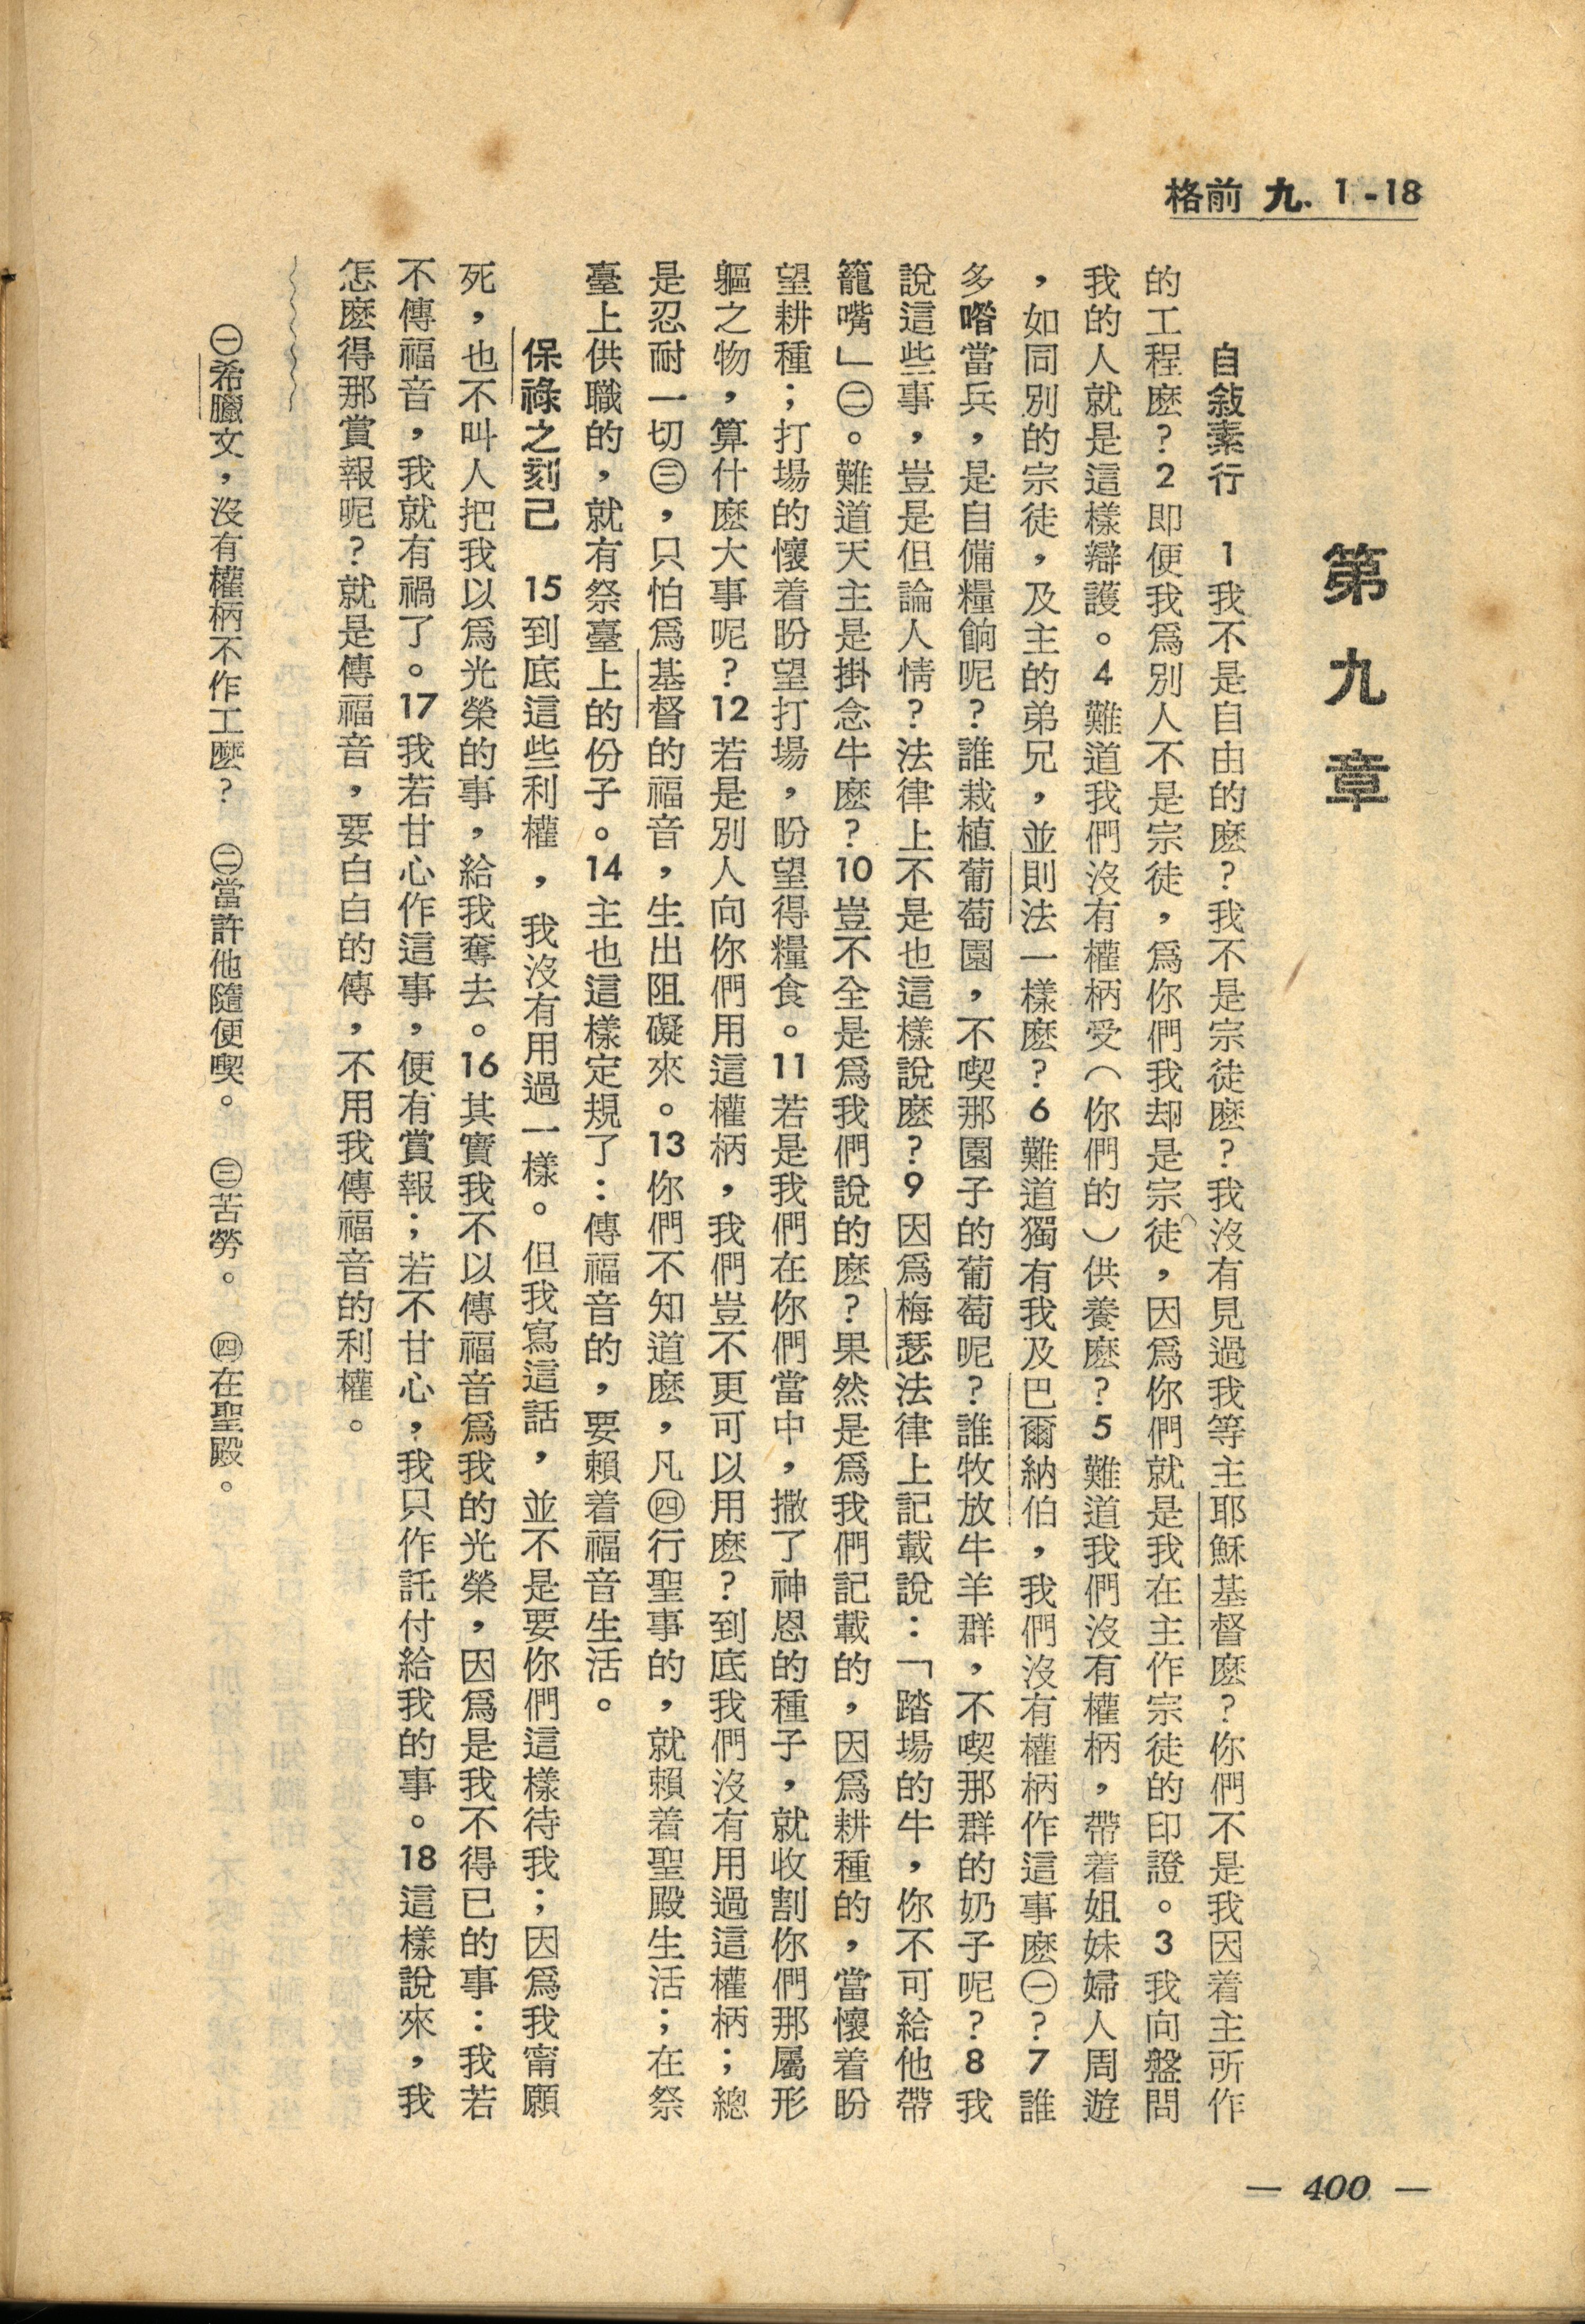 格前 九. 1-18
第九章
自敍素行　1我不是自由的麽?我不是宗徒麽?我沒有見過我等主耶穌基督麽?你們不是我因着主所作
的工程麽?2即便我爲別人不是宗徒，爲你們我却是宗徒，因爲你們就是我在主作宗徒的印證。3我向盤問
我的人就是這樣辯護。4難道我們沒有權柄受（你們的）供養麽?5難道我們沒有權柄，帶着姐妹婦人周遊
，如同別的宗徒，及主的弟兄，並則法一樣麽?6難道獨有我及巴爾納伯，我們沒有權柄作這事麽㊀?7誰
多喒當兵，是自備糧餉呢?誰栽植葡萄園，不喫那園子的葡萄呢?誰牧放牛羊群，不喫那群的奶子呢?8我
說這些事，豈是但論人情?法律上不是也這樣說麽?9因爲梅瑟法律上記載說：「踏場的牛，你不可給他帶
籠嘴」㊁。難道天主是掛念牛麽?10豈不全是爲我們說的麽?果然是爲我們記載的，因爲耕種的，當懷着盼
望耕種；打場的懷着盼望打場，盼望得糧食。11若是我們在你們當中，撒了神恩的種子，就收割你們那屬形
軀之物，算什麽大事呢?12若是別人向你們用這權柄，我們豈不更可以用麽?到底我們沒有用過這權柄；總
是忍耐一切㊂，只怕爲基督的福音，生出阻礙來。13你們不知道麽，凡㊃行聖事的，就賴着聖殿生活；在祭
臺上供職的，就有祭臺上的份子。14主也這樣定規了：傳福音的，要賴着福音生活。
保祿之刻己　15到底這些利權，我沒有用過一樣。但我寫這話，並不是要你們這樣待我；因爲我甯願
死，也不叫人把我以爲光榮的事，給我奪去。16其實我不以傳福音爲我的光榮，因爲是我不得已的事：我若
不傳福音，我就有禍了。17我若甘心作這事，便有賞報；若不甘心，我只作託付給我的事。18這樣說來，我
怎麽得那賞報呢?就是傳福音，要白白的傳，不用我傳福音的利權。
㊀希臘文，沒有權柄不作工麽?　㊁當許他隨便喫。　㊂苦勞。　㊃在聖殿。
— 400 —